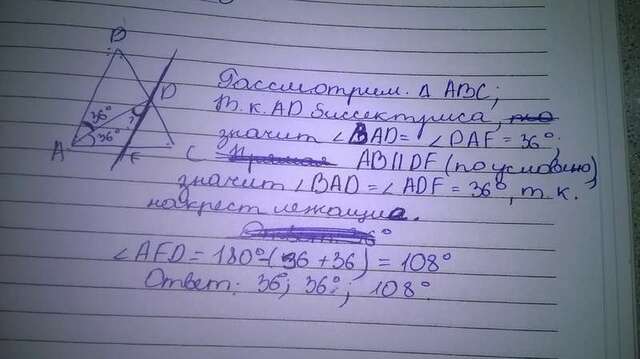 B
D
36°
36°
?
A
F
C
Рассмотрим. Δ ABC;
Т.к. AD биссектриса,
значит ∠BAD = ∠DAF = 36°;
AB || DF (по условию),
значит ∠BAD = ∠ADF = 36°, т.к.
накрест лежащие.
∠AFD = 180° - (36 + 36) = 108°
Ответ: 36°; 36°; 108°.